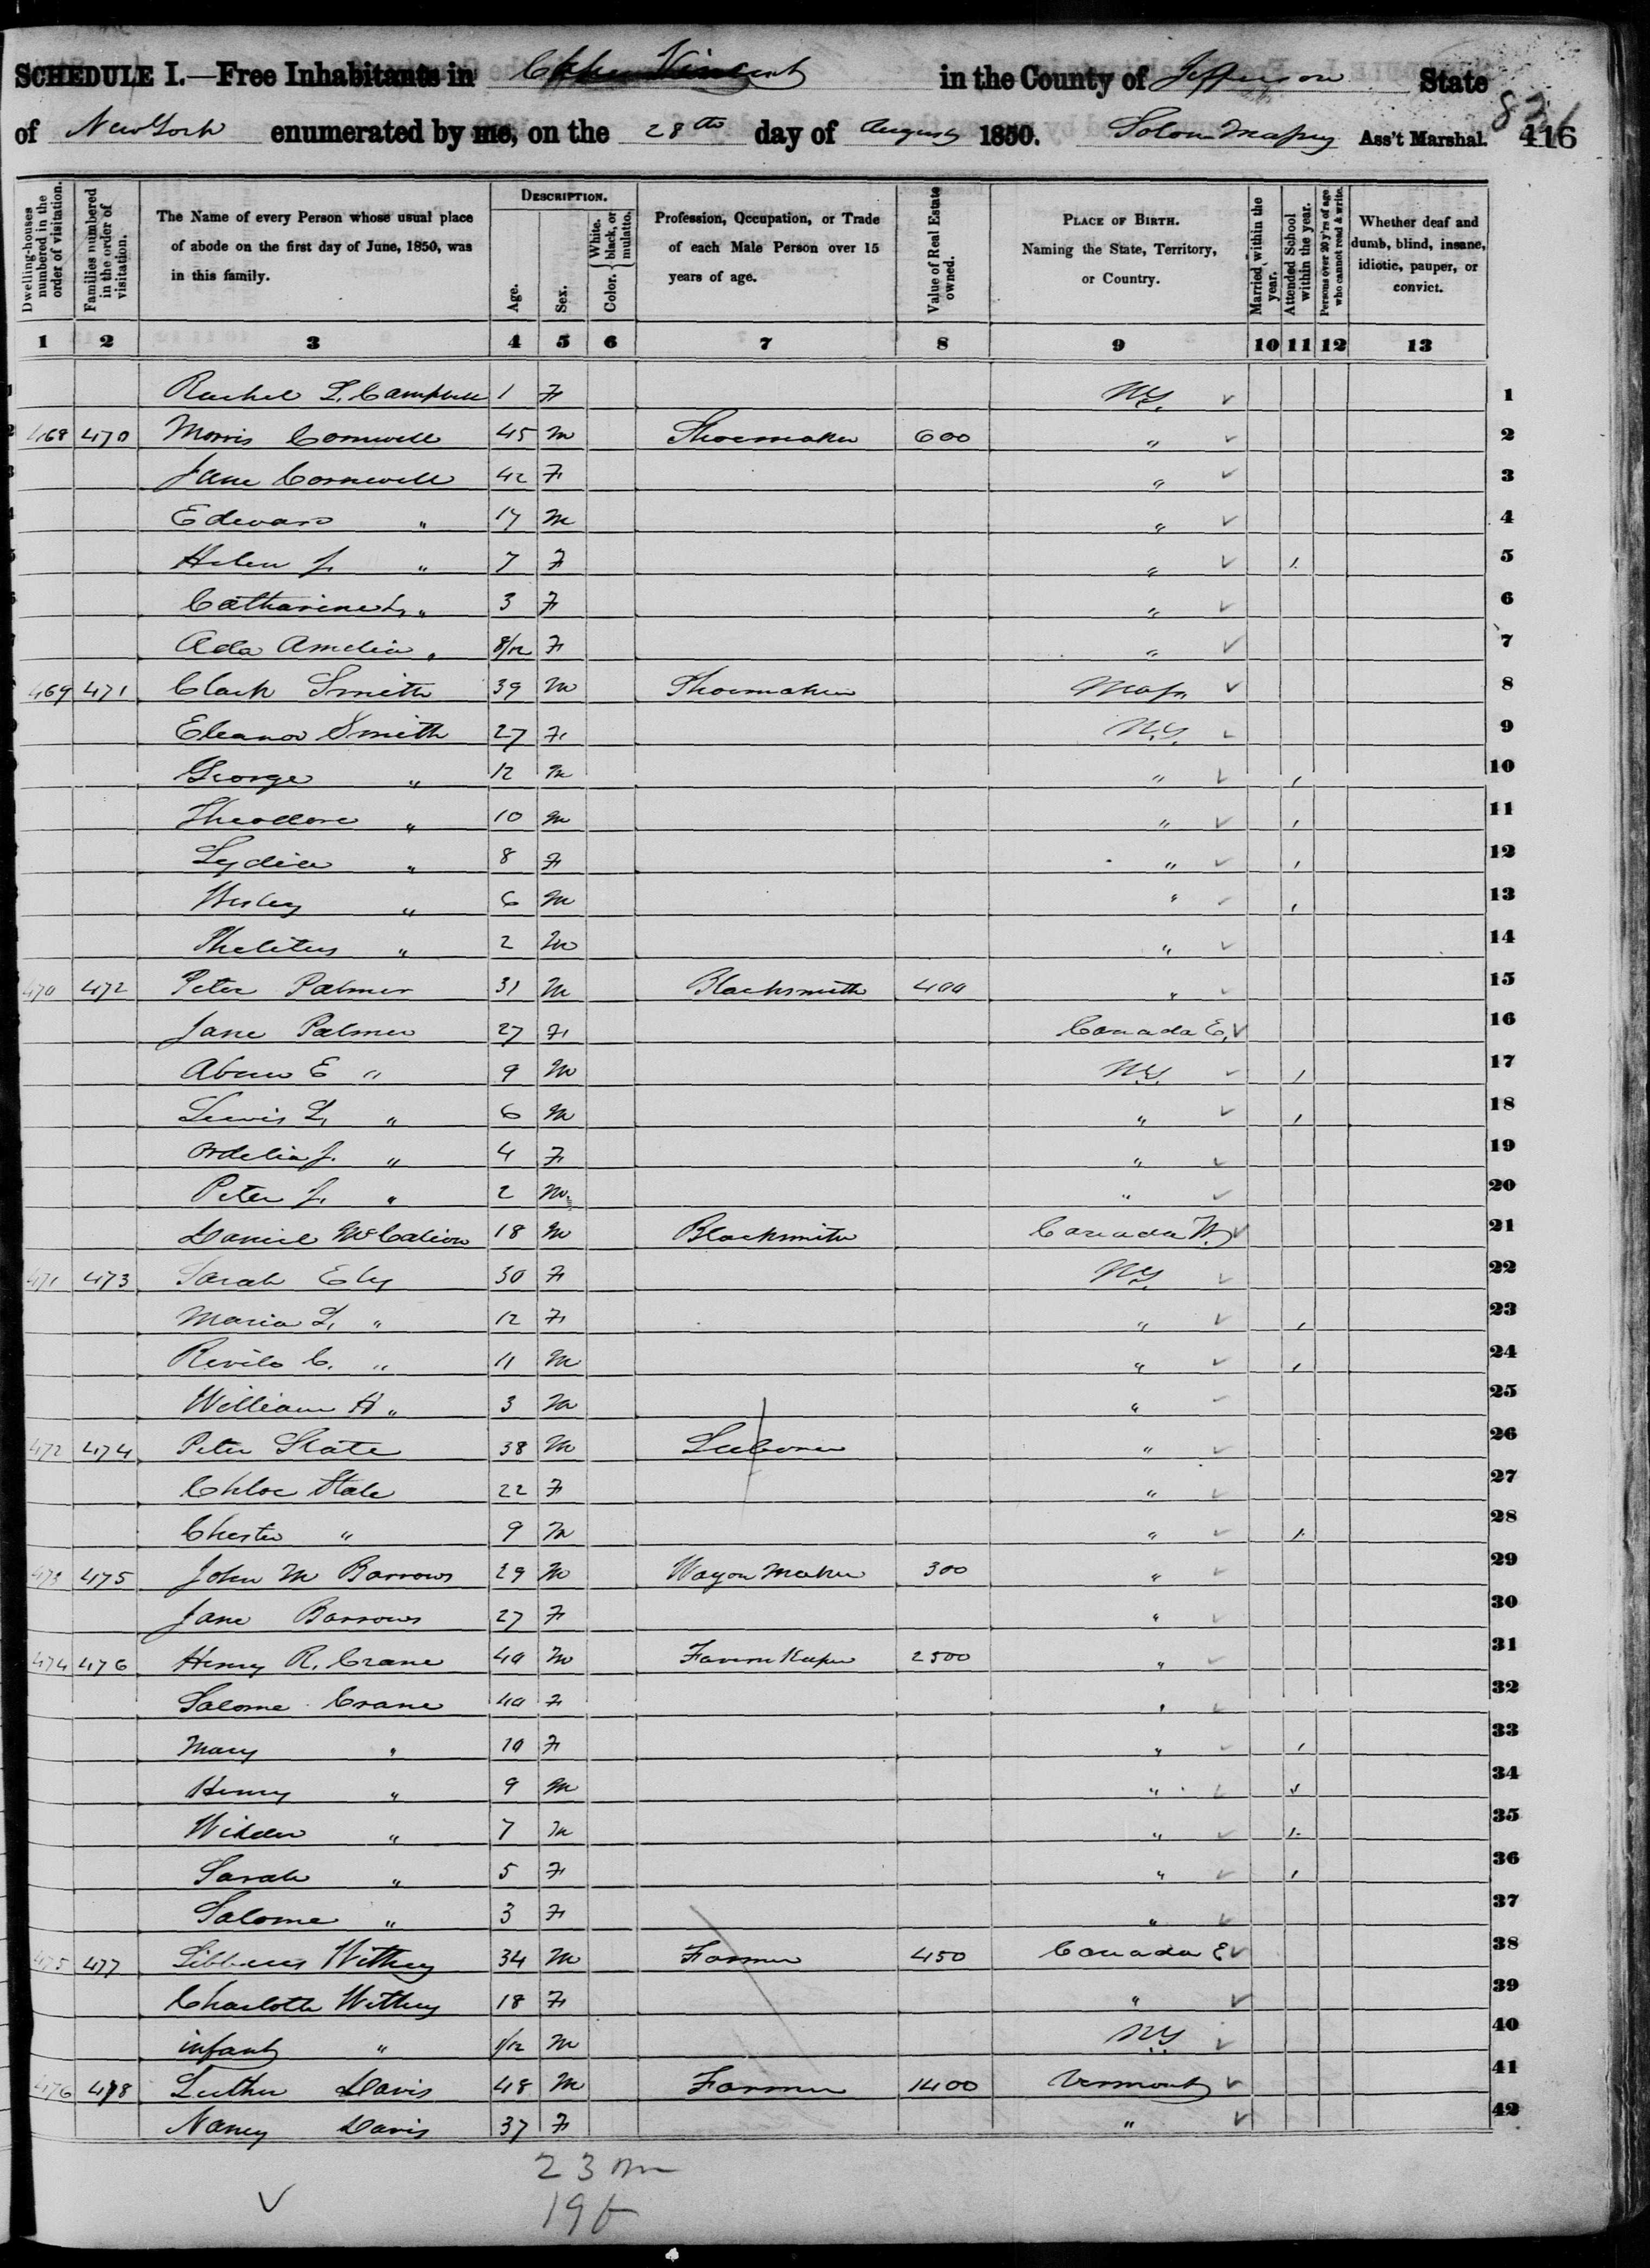 SCHEDULE I.—Free Inhabitants in Cape Vincent in the County of Jefferson State
of New York enumerated by me, on the 28th day of August 1850. Ass't Marshal. 416
831
Dwelling-houses numbered in the order of visitation.
Families numbered in the order of visitation.
The Name of every Person whose usual place of abode on the first day of June, 1850, was in this family.
DESCRIPTION.
Age.
Sex.
Color. { White, black, or mulatto.
Profession, Occupation, or Trade of each Male Person over 15 years of age.
Value of Real Estate owned.
PLACE OF BIRTH. Naming the State, Territory, or Country.
Married within the year.
Attended School within the year.
Persons over 20 y'rs of age who cannot read & write.
Whether deaf and dumb, blind, insane, idiotic, pauper, or convict.
1 2 3 4 5 6 7 8 9 10 11 12 13
Rachel L. Campbell 1 F N.Y. ✓ 1
2 468 470 Morris Cornwell 45 M Shoemaker 600 " ✓ 2
Jane Cornwell 42 F " ✓ 3
Edward " 17 M " ✓ 4
Helen J. " 7 F " ✓ 1 5
Catharine L. " 3 F " ✓ 6
Ada Amelia " 8/12 F " ✓ 7
469 471 Clark Smith 39 M Shoemaker Mass. ✓ 8
Eleanor Smith 27 F N.Y. ✓ 9
George " 12 M " ✓ 1 10
Theodore " 10 M " ✓ 1 11
Lydia " 8 F " ✓ 1 12
Wesley " 6 M " ✓ 1 13
Philetus " 2 M " ✓ 14
470 472 Peter Palmer 31 M Blacksmith 400 " ✓ 15
Jane Palmer 27 F Canada E. ✓ 16
E " 9 M N.Y. ✓ 1 17
Lewis L. " 6 M " ✓ 1 18
Ordelia J. " 4 F " ✓ 19
Peter J. " 2 M " ✓ 20
Daniel 18 M Blacksmith Canada W. ✓ 21
471 473 Sarah Ely 30 F N.Y. ✓ 22
Maria L. " 12 F " ✓ 1 23
Revilo C. " 11 M " ✓ 1 24
William H " 3 M " ✓ 25
472 474 Peter Slate 38 M Laborer " ✓ 26
Chloe Slate 22 F " ✓ 27
Chester " 9 M " ✓ 1 28
473 475 John M Barrows 29 M Wagon Maker 300 " ✓ 29
Jane Barrows 27 F " ✓ 30
474 476 Henry R. Crane 40 M Tavern Keeper 2500 " ✓ 31
Salome Crane 40 F " ✓ 32
Mary " 10 F " ✓ 1 33
Henry " 9 M " ✓ 1 34
Wilder " 7 M " ✓ 1 35
Sarah " 5 F " ✓ 1 36
Salome " 3 F " ✓ 37
475 477 Libbeus Withey 34 M Farmer 450 Canada E ✓ 38
Charlotte Withey 18 F " ✓ 39
infant " 1/12 M N.Y. ✓ 40
476 478 Luther Davis 48 M Farmer 1400 Vermont ✓ 41
Nancy Davis 37 F " ✓ 42
23 m
✓ 19 f